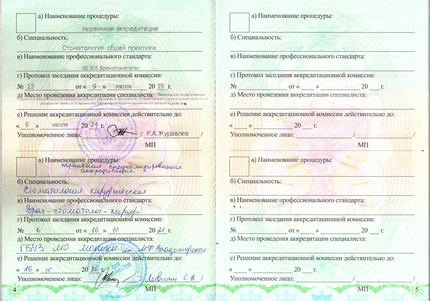 а) Наименование процедуры:
первичная аккредитация
б) Специальность:
Стоматология общей практики
в) Наименование профессионального стандарта:
02.005 Врач-стоматолог
г) Протокол заседания аккредитационной комиссии:
№ 13 от « 9 » июля 2019 г.
д) Место проведения аккредитации специалиста:
е) Решение аккредитационной комиссии действительно до:
« 9 » июля 2024 г.
Уполномоченное лицо: / Р.А.Журавлев /
МП
а) Наименование процедуры:
первичная специализированная
аккредитация
б) Специальность:
Стоматология хирургическая
в) Наименование профессионального стандарта:
Врач-стоматолог-хирург
г) Протокол заседания аккредитационной комиссии:
№ 6 от « 16 » 10 2021 г.
д) Место проведения аккредитации специалиста:
ГБУЗ МО МОНИКИ им. М.Ф. Владимирского
е) Решение аккредитационной комиссии действительно до:
« 16 » 10 20
Уполномоченное лицо:
4 МП
а) Наименование процедуры:
б) Специальность:
в) Наименование профессионального стандарта:
г) Протокол заседания аккредитационной комиссии:
№ от « » 20 г.
д) Место проведения аккредитации специалиста:
е) Решение аккредитационной комиссии действительно до:
« » 20 г.
Уполномоченное лицо: / /
МП
а) Наименование процедуры:
б) Специальность:
в) Наименование профессионального стандарта:
г) Протокол заседания аккредитационной комиссии:
№ от « » 20 г.
д) Место проведения аккредитации специалиста:
е) Решение аккредитационной комиссии действительно до:
« » 20 г.
Уполномоченное лицо: / /
МП 5